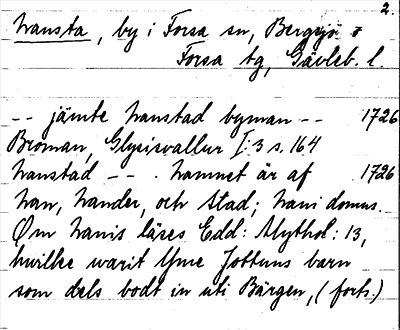 2.
Hansta, by i Forsa sn, Bergsjö o
Forsa tg, Gävleb. l.
-- jämte Hanstad byman -- 1726
Broman, Glysisvallur I:3 s. 164
Hanstad -- . Namnet är af 1726
han, hander, och stad; hani domus.
Om hanis läses Edd: Mythol: 13,
hwilke warit Yme Jottuns barn
som dels bodt in uti Bärgen, (forts.)